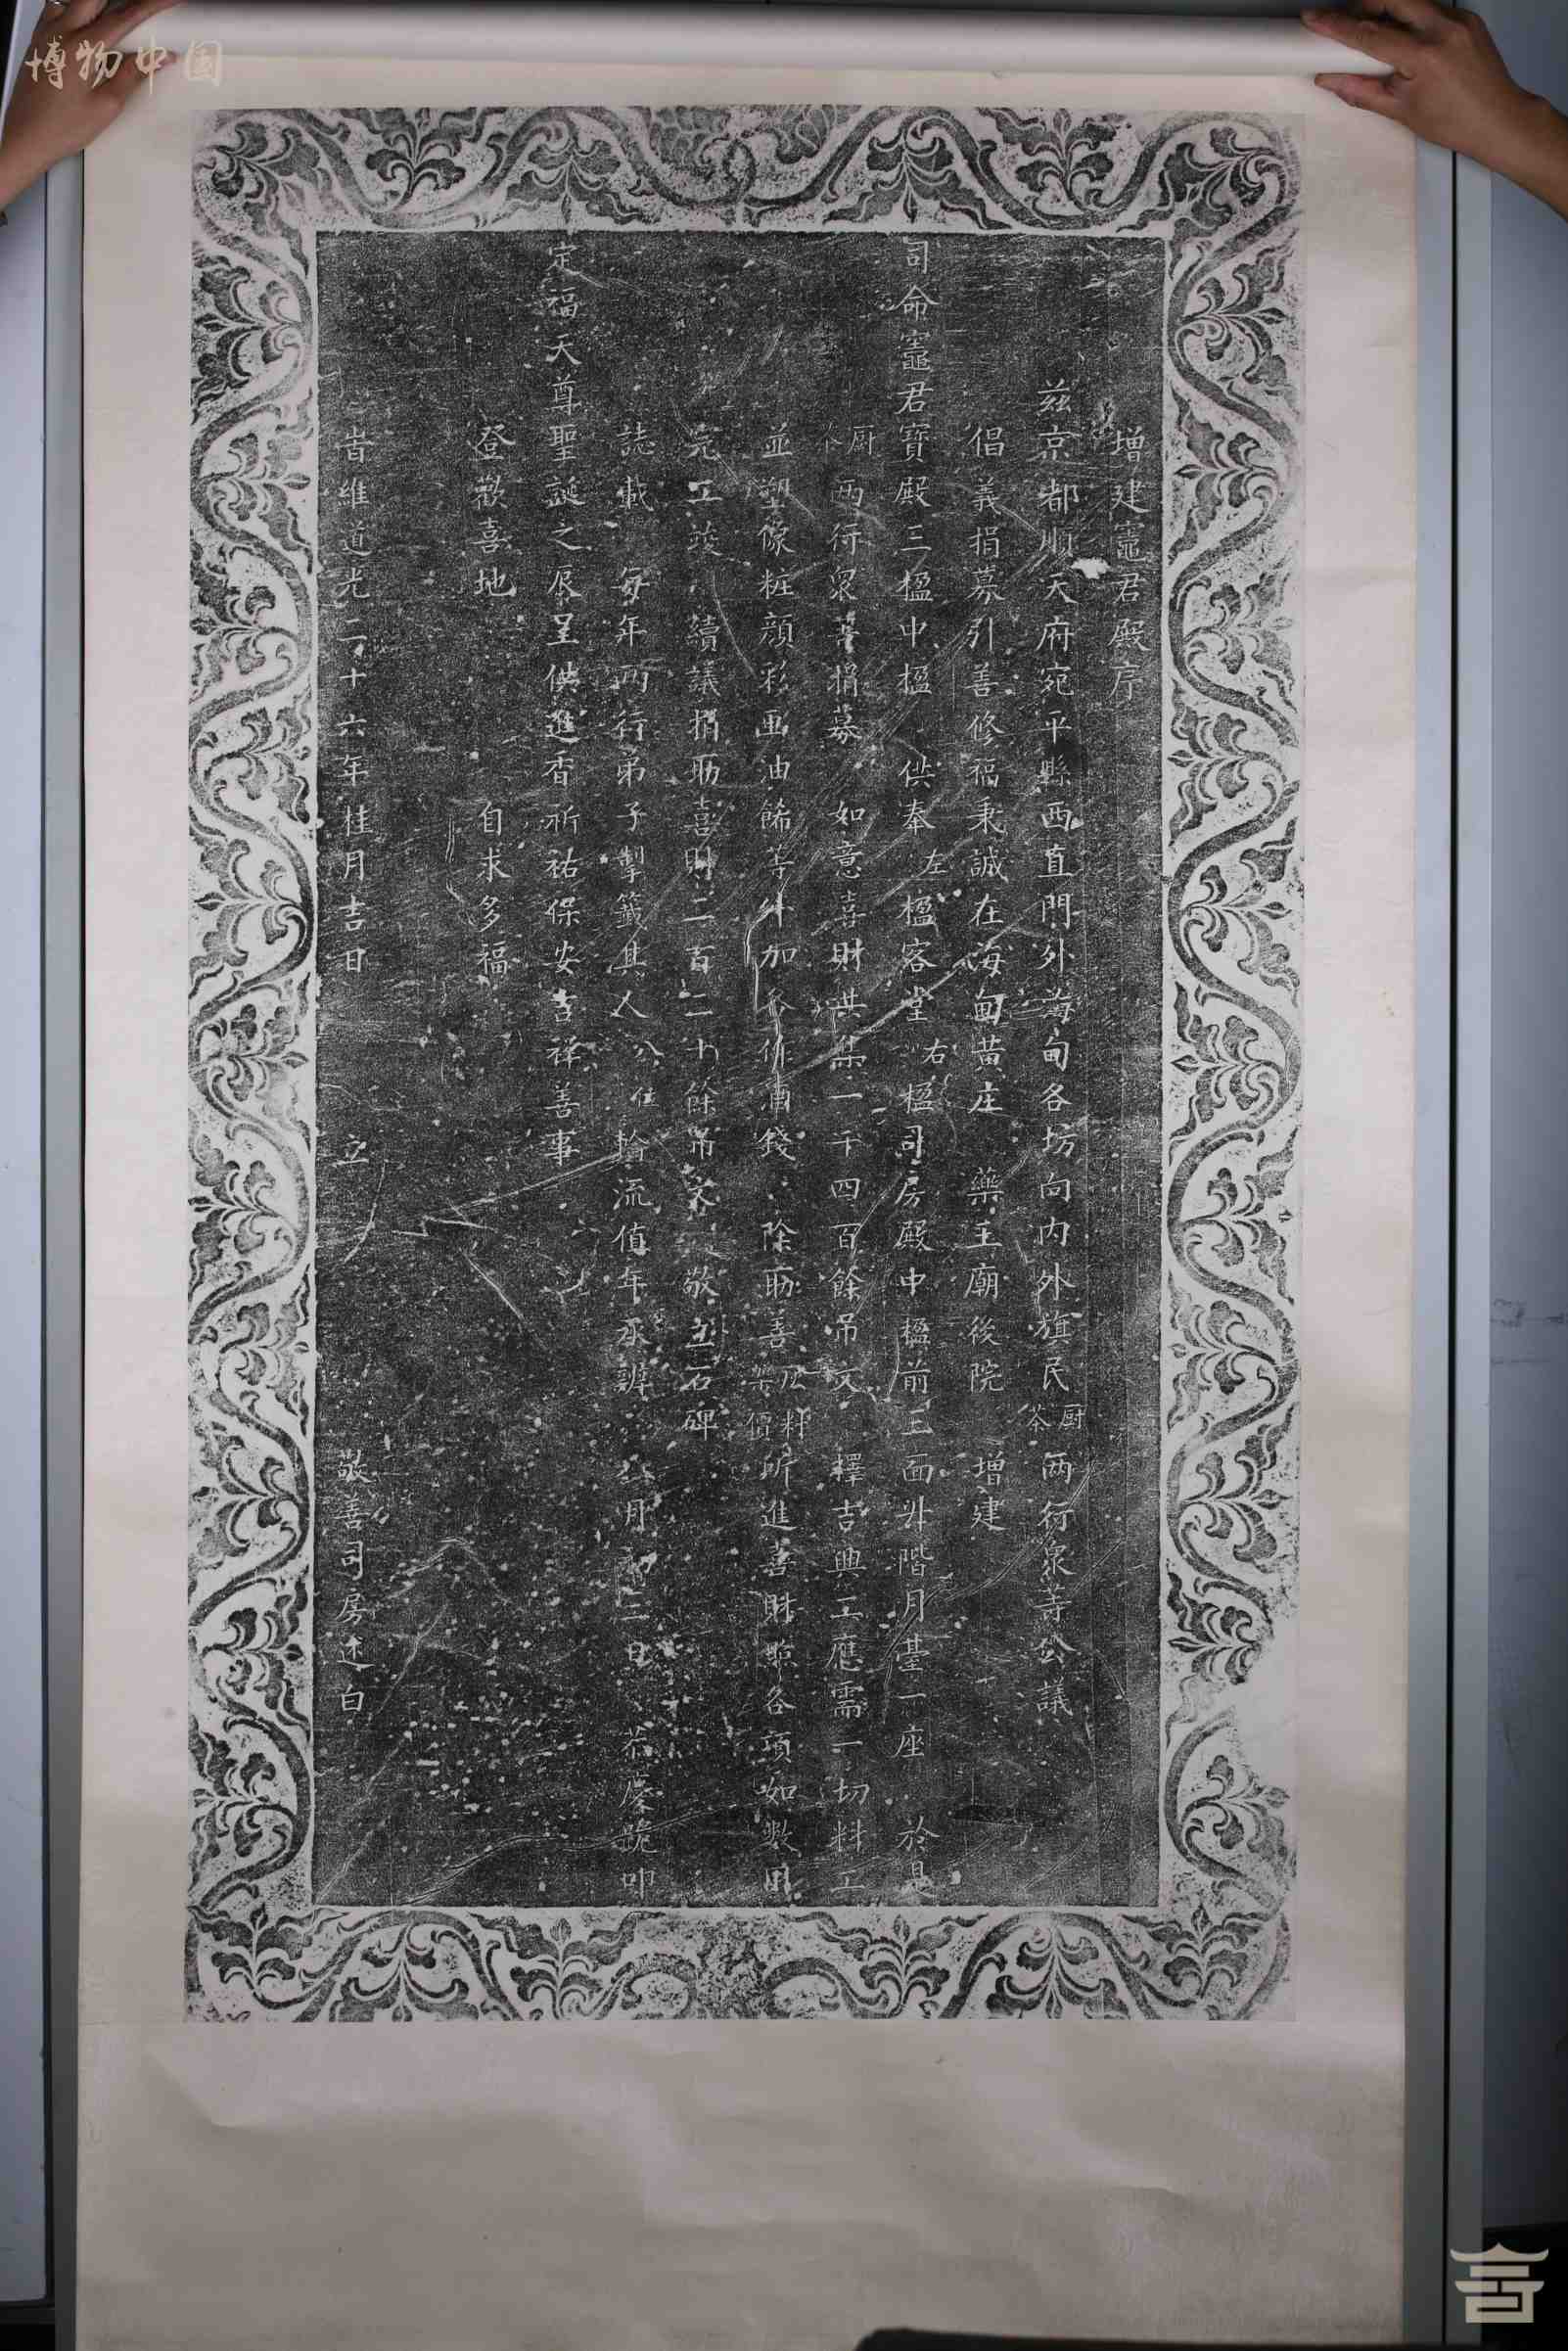 博物中国
增建竈君殿序
茲京都順天府宛平縣西直門外海甸各坊向內外旗民厨茶兩行眾等公議
倡義捐募引善修福秉誠在海甸黃庄 藥王廟後院 增建
司命竈君寶殿三楹中楹 供奉左楹客堂右楹司房殿中楹前三面廾階月臺一座 於是
厨茶两行眾善捐募 如意喜財共集一千四百餘吊文 擇吉興工應需一切料工
並塑像粧顏彩画油餙等 外加各作酒錢 除助善 瓦料 價所進喜財照各項如數用
完工竣 續議捐助喜財二百二十餘吊文 敬立石碑
誌載 每年两行弟子掣籤其人八位輪流值年承辦 八月初三日 恭慶跪叩
定福天尊聖誕之辰呈供進香祈祐保安吉祥善事
登歡喜地 自求多福
旹維道光二十六年桂月吉日 立 敬善司房述白